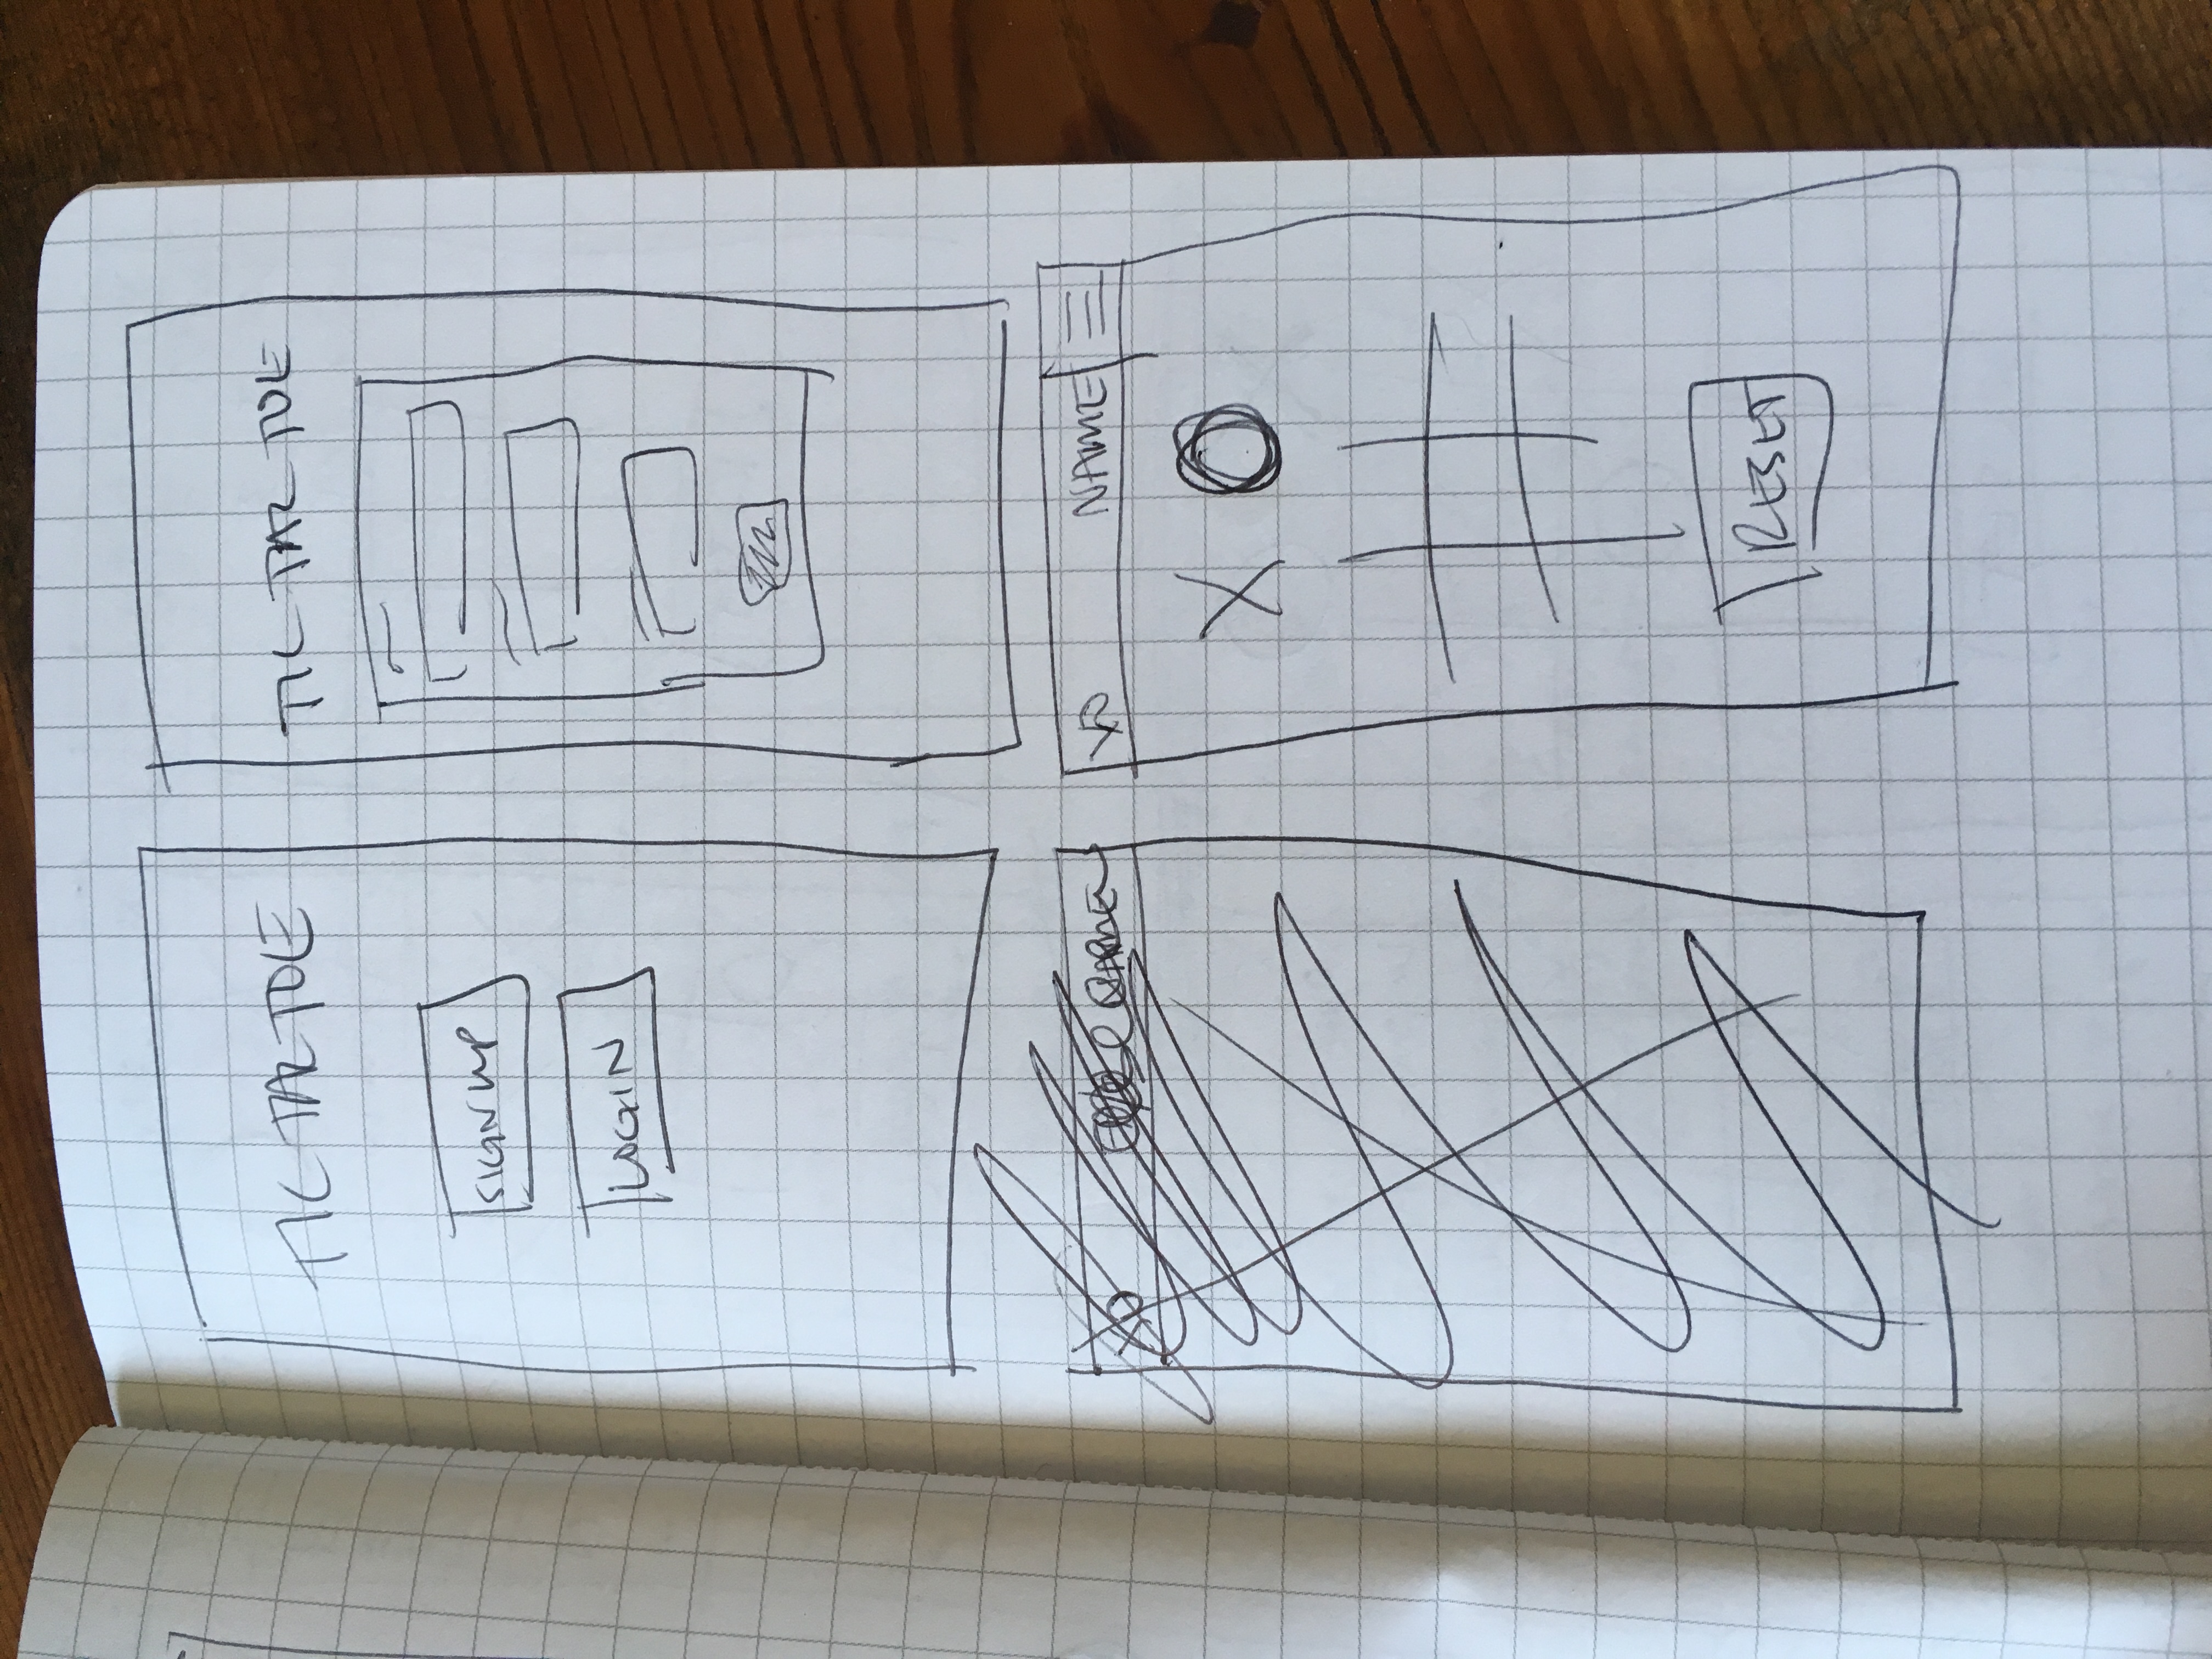 TIC TAC TOE
SIGN UP
LOGIN
TIC TAC TOE
XO NAME
XO NAME
X O
RESET